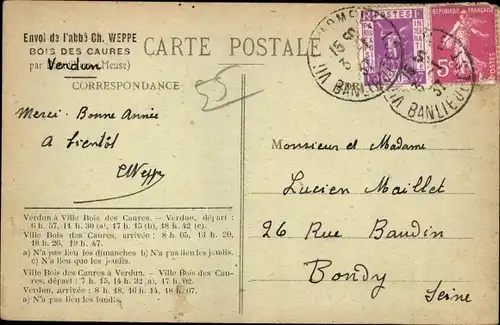 Envoi de l'abbé Ch. WEPPE
BOIS DES CAURES
par Meuse)
Verdun
CARTE POSTALE
CORRESPONDANCE
Merci. Bonne Année
A bientôt
CWeppe
Monsieur et Madame
Lucien Maillet
26 Rue Baudin
Bondy
Seine
Verdun à Ville Bois des Caures. — Verdun, départ :
6 h. 57, 11 h. 30 (a), 17 h. 15 (b), 18 h. 42 (c).
Ville Bois des Caures, arrivée : 8 h. 05, 13 h. 20,
18 h. 26, 19 h. 47.
a) N'a pas lieu les dimanches b) N'a pas lieu les jeudis.
c) N'a lieu que les jeudis.
Ville Bois des Caures à Verdun. - Ville Bois des Cau-
res, départ : 7 h. 15, 14 h. 32 (a), 17 h. 02.
Verdun, arrivée : 8 h. 18, 16 h. 14, 18 h. 07.
a) N'a pas lieu les lundis.
POSTES
REPUBLIQUE FRANÇAISE
BANLIEUE
BANLIEUE